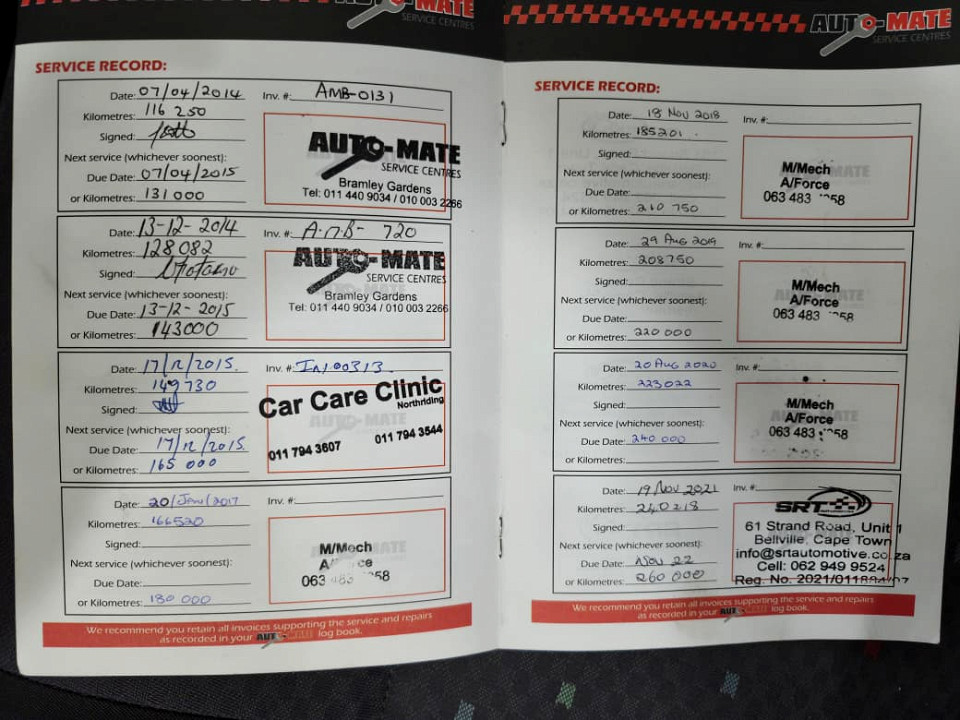 AUTO-MATE
SERVICE CENTRES
SERVICE RECORD:
Date: 07/04/2014 Inv. #: AMB-0131
Kilometres: 116 250
Signed:
Next service (whichever soonest):
Due Date: 07/04/2015
or Kilometres: 131 000
AUTO-MATE
SERVICE CENTRES
Bramley Gardens
Tel: 011 440 9034 / 010 003 2266
Date: 13-12-2014 Inv. #: AMB-720
Kilometres: 128 082
Signed:
Next service (whichever soonest):
Due Date: 13-12-2015
or Kilometres: 143000
AUTO-MATE
SERVICE CENTRES
Bramley Gardens
Tel: 011 440 9034 / 010 003 2266
Date: 17/12/2015. Inv. #: IN100313.
Kilometres: 149 730
Signed:
Next service (whichever soonest):
Due Date: 17/12/2015.
or Kilometres: 165 000
Car Care Clinic
Northriding
011 794 3607 011 794 3544
Date: 20/Jan/2017 Inv. #:
Kilometres: 166520
Signed:
Next service (whichever soonest):
Due Date:
or Kilometres: 180 000
M/Mech
063 483
We recommend you retain all invoices supporting the service and repairs
as recorded in your AUTO-MATE log book.
AUTO-MATE
SERVICE CENTRES
SERVICE RECORD:
Date: 18 Nov 2018 Inv. #:
Kilometres: 185201.
Signed:
Next service (whichever soonest):
Due Date:
or Kilometres: 210 750
M/Mech
A/Force
063 483
Date: 29 Aug 2019 Inv. #:
Kilometres: 208750
Signed:
Next service (whichever soonest):
Due Date:
or Kilometres: 220 000
M/Mech
A/Force
063 483
Date: 20 Aug 2020 Inv. #:
Kilometres: 223022
Signed:
Next service (whichever soonest):
Due Date: 240 000
or Kilometres:
M/Mech
A/Force
063 483
Date: 19 Nov 2021 Inv. #:
Kilometres: 240218
Signed:
Next service (whichever soonest):
Due Date: Nov 22
or Kilometres: 260 000
SRT
61 Strand Road, Unit 1
Bellville, Cape Town
info@srtautomotive.co.za
Cell: 062 949 9524
Reg. No. 2021/011884/07
We recommend you retain all invoices supporting the service and repairs
as recorded in your AUTO-MATE log book.